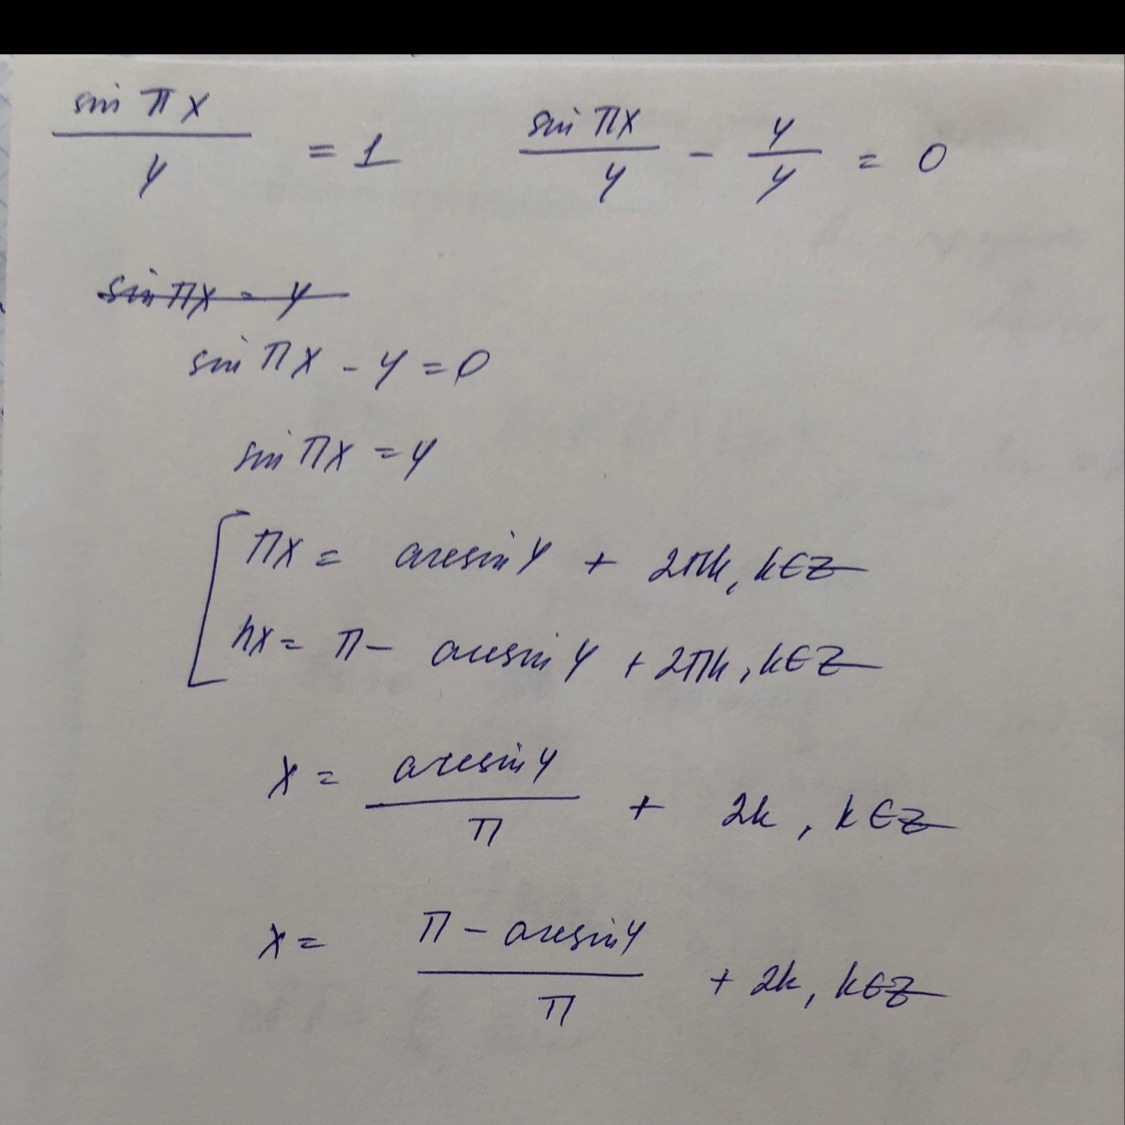 sin πx / y = 1    sin πx / y - y / y = 0
sin πx = y
sin πx - y = 0
sin πx = y
[ πx = arcsin y + 2πk, k ∈ Z
πx = π - arcsin y + 2πk, k ∈ Z
x = arcsin y / π + 2k, k ∈ Z
x = π - arcsin y / π + 2k, k ∈ Z